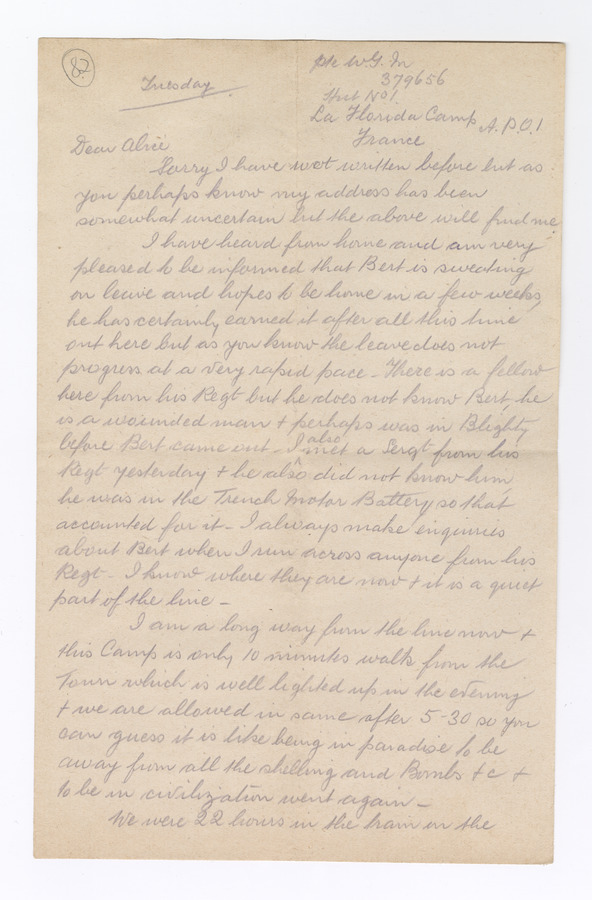 87
Tuesday
Pte W.G.
379656
Hut No 1.
La Florida Camp A.P.O.1.
France
Dear Alice
Sorry I have not written before but as
you perhaps know my address has been
somewhat uncertain but the above will find me.
I have heard from home and am very
pleased to be informed that Bert is sweating
on leave and hopes to be home in a few weeks,
he has certainly earned it after all this time
out here but as you know the leave does not
progress at a very rapid pace - There is a fellow
here from his Regt but he does not know Bert, he
is a wounded man + perhaps was in Blighty
before Bert came out - I also met a Sergt from his
Regt yesterday + he also did not know him,
he was in the Trench Motor Battery so that
accounted for it - I always make enquiries
about Bert when I run across anyone from his
Regt - I know where they are now + it is a quiet
part of the line -
I am a long way from the line now +
this Camp is only 10 minutes walk from the
Town which is well lighted up in the evening
+ we are allowed in same after 5-30 so you
can guess it is like being in paradise to be
away from all the shelling and Bombs + c +
to be in civilization again -
We were 22 hours in the train on the